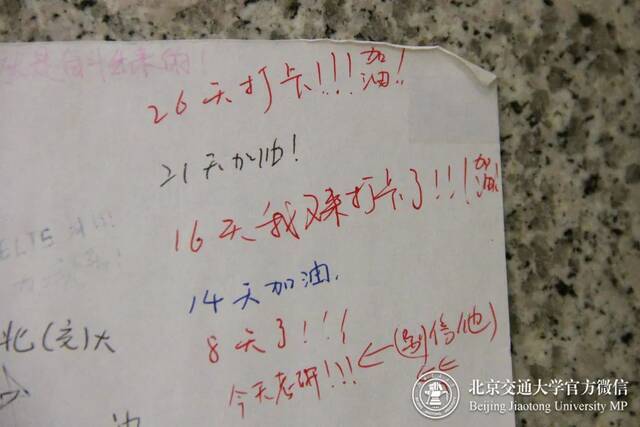 26天打卡!!!加油!!
21天加油!
16天我又来打卡了!!!加油!
14天加油.
8天了!!!
今天考研!!!←(别信他)
ELTS
北(交)大
北京交通大学官方微信
Beijing Jiaotong University MP